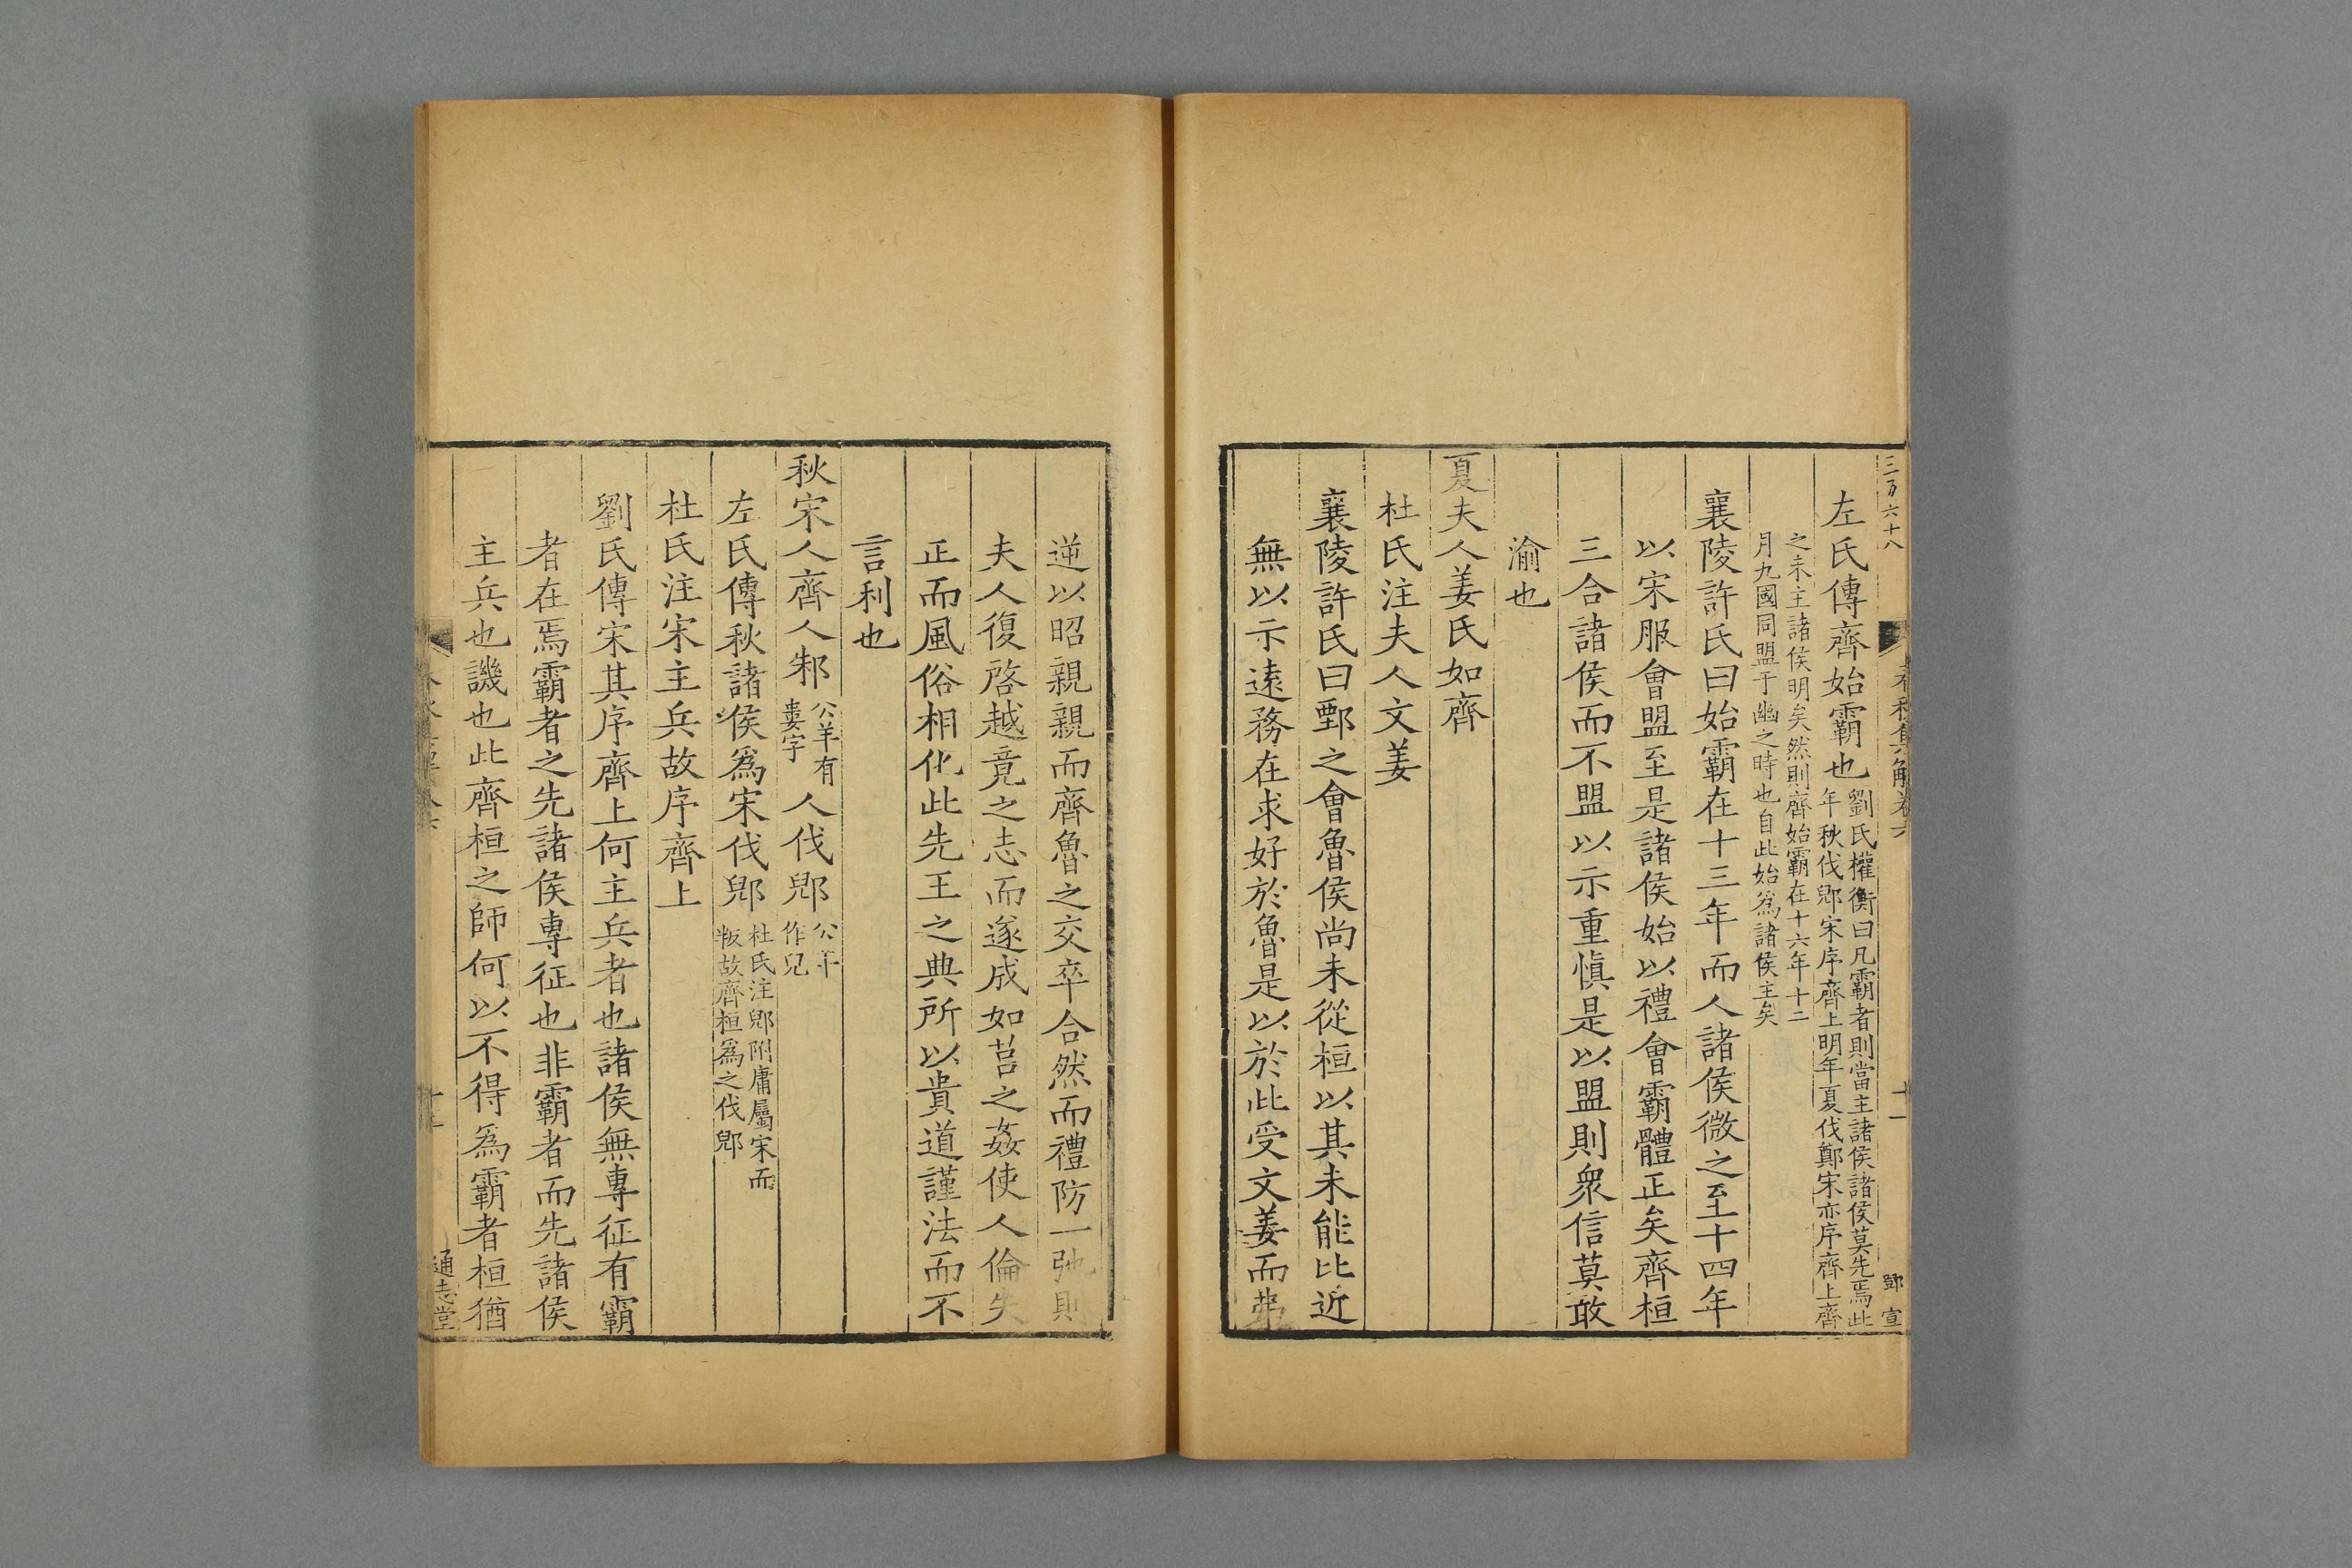 三百六十八
十一
鄧宣
左氏傳齊始霸也劉氏權衡曰凡霸者則當主諸侯諸侯莫先焉此
年秋伐郳宋序齊上明年夏伐鄭宋亦序齊上齊
之未主諸侯明矣然則齊始霸在十六年十二
月九國同盟于幽之時也自此始爲諸侯主矣
襄陵許氏曰始霸在十三年而人諸侯微之至十四年
以宋服會盟至是諸侯始以禮會霸體正矣齊桓
三合諸侯而不盟以示重慎是以盟則衆信莫敢
渝也
夏夫人姜氏如齊
杜氏注夫人文姜
襄陵許氏曰鄄之會魯侯尚未從桓以其未能比近
無以示遠務在求好於魯是以於此受文姜而弗
逆以昭親親而齊魯之交卒合然而禮防一弛則
夫人復啓越竟之志而遂成如莒之姦使人倫失
正而風俗相化此先王之典所以貴道謹法而不
言利也
秋宋人齊人邾公羊有
婁字人伐郳公羊
作兒
左氏傳秋諸侯爲宋伐郳杜氏注郳附庸屬宋而
叛故齊桓爲之伐郳
杜氏注宋主兵故序齊上
劉氏傳宋其序齊上何主兵者也諸侯無專征有霸
者在焉霸者之先諸侯專征也非霸者而先諸侯
主兵也譏也此齊桓之師何以不得爲霸者桓猶
通志堂